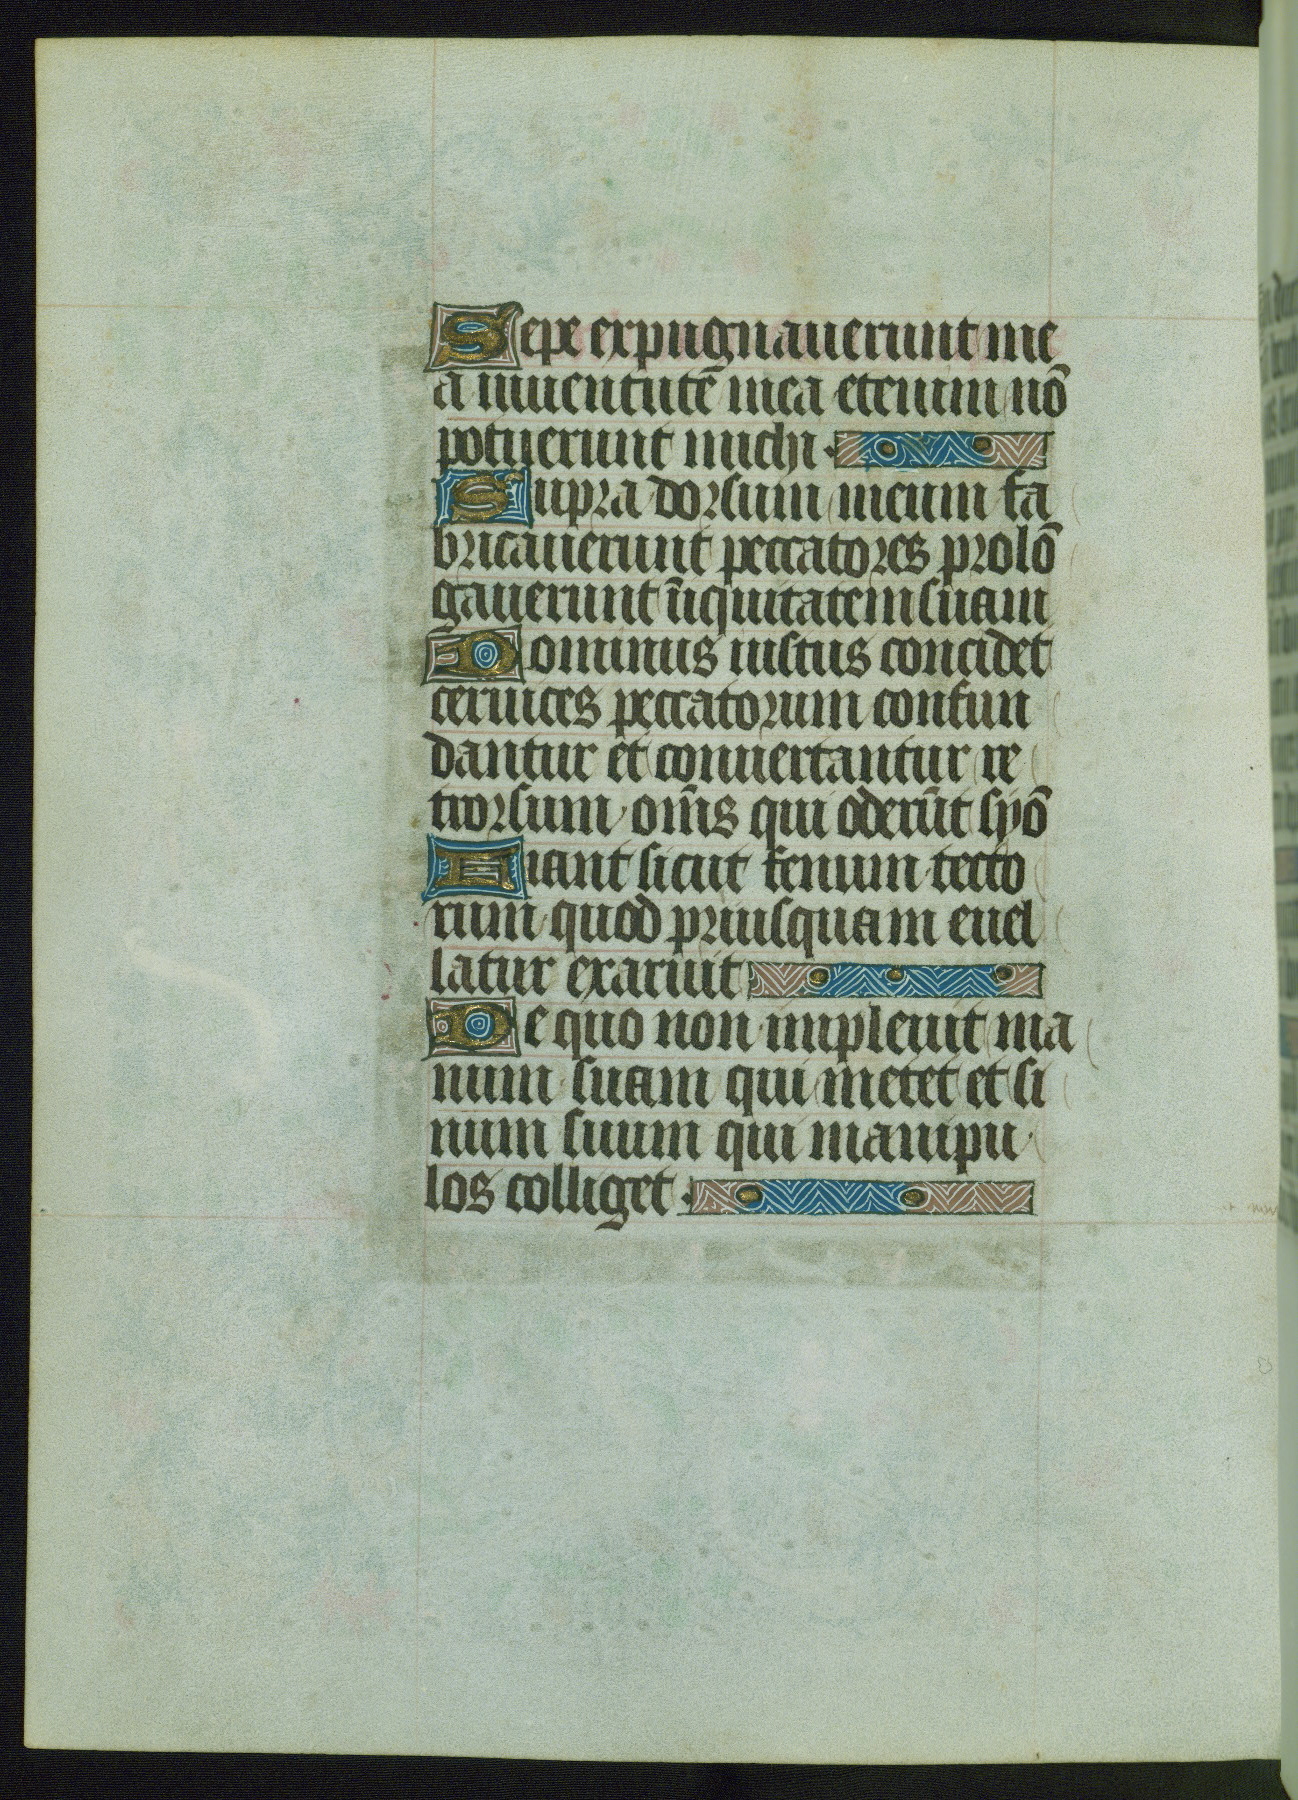 Sepe expugnauerunt me
a iuuentutē mea etenim nō
potuerunt michi.
Supra dorsum meum fa
bricauerunt peccatores prolō
gauerunt īiquitatem suam
Dominus iustus concidet
ceruices peccatorum confun
dantur et conuertantur re
trorsum om̄s qui oderūt syō
Fiant sicut fenum tecto
rum quod priusquam euel
latur exaruit
De quo non impleuit ma
num suam qui metet et si
num suum qui manipu
los colliget.